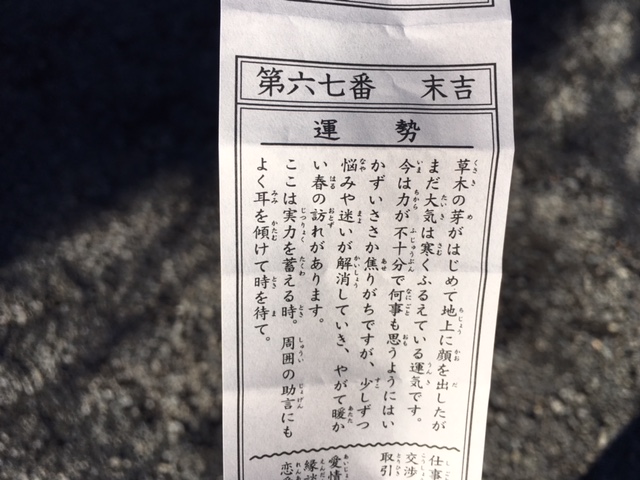 第六七番 末吉
運勢
草木の芽がはじめて地上に顔を出したが
まだ大気は寒くふるえている運気です。
今は力が不十分で何事も思うようにはい
かずいささか焦りがちですが、少しずつ
悩みや迷いが解消していき、やがて暖か
い春の訪れがあります。
ここは実力を蓄える時。周囲の助言にも
よく耳を傾けて時を待て。
仕事
交渉
取引
愛情
縁談